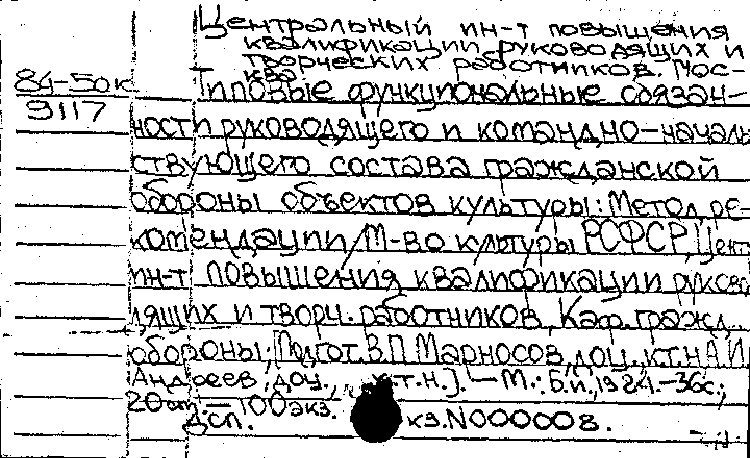 Центральный ин-т повышения
квалификации руководящих и
творческих работников. Мос-
ква
84-50к
9117
Типовые функциональные обязан-
ности руководящего и командно-началь
ствующего состава гражданской
обороны объектов культуры: Метод. ре-
комендации/М-во культуры РСФСР, Центр
ин-т повышения квалификации руково
дящих и творч. работников, Каф. гражд.
обороны; [Подгот. В.П. Марносов, доц., к.т.н А.И.
Андреев, доц., к.т.н.]. — М.: Б.и., 1984. - 36с.;
20см. — 100экз.
Дсп. кз. N000008.